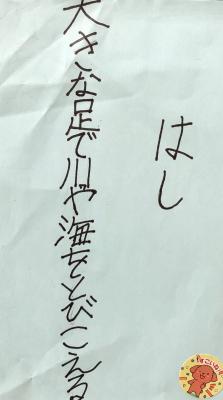 はし
大きな足で川や海をとびこえる
すごいね!!